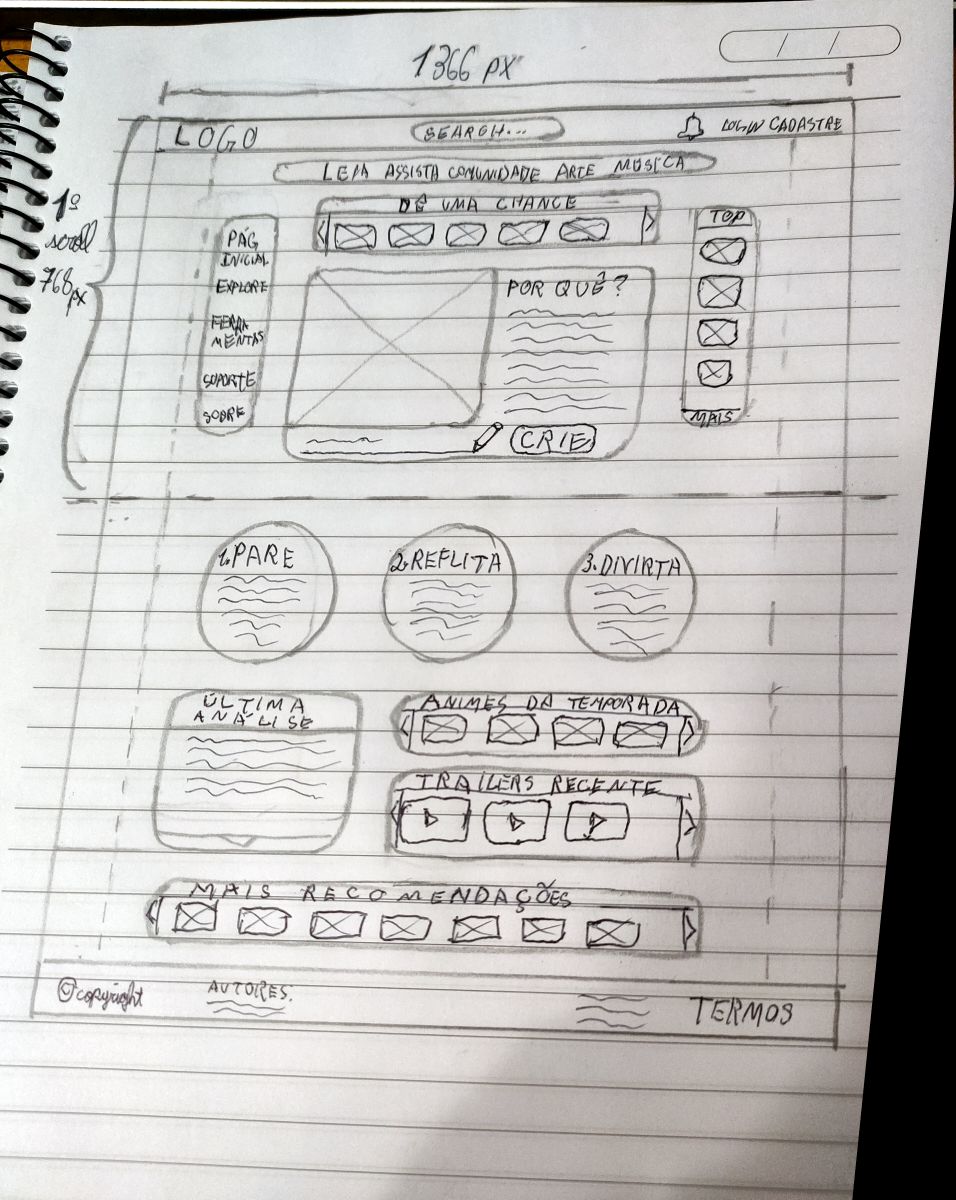 1366 px
LOGO
SEARCH...
LOGIN CADASTRE
LEIA ASSISTA COMUNIDADE ARTE MÚSICA
1º
scroll
768px
DÊ UMA CHANCE
PÁG
INICIAL
EXPLORE
FERRA
MENTAS
SUPORTE
SOBRE
POR QUÊ?
CRIE
TOP
MAIS
1.PARE
2.REFLITA
3.DIVIRTA
ÚLTIMA
ANÁLISE
ANIMES DA TEMPORADA
TRAILERS RECENTE
MAIS RECOMENDAÇÕES
© copyright
AUTORES.
TERMOS